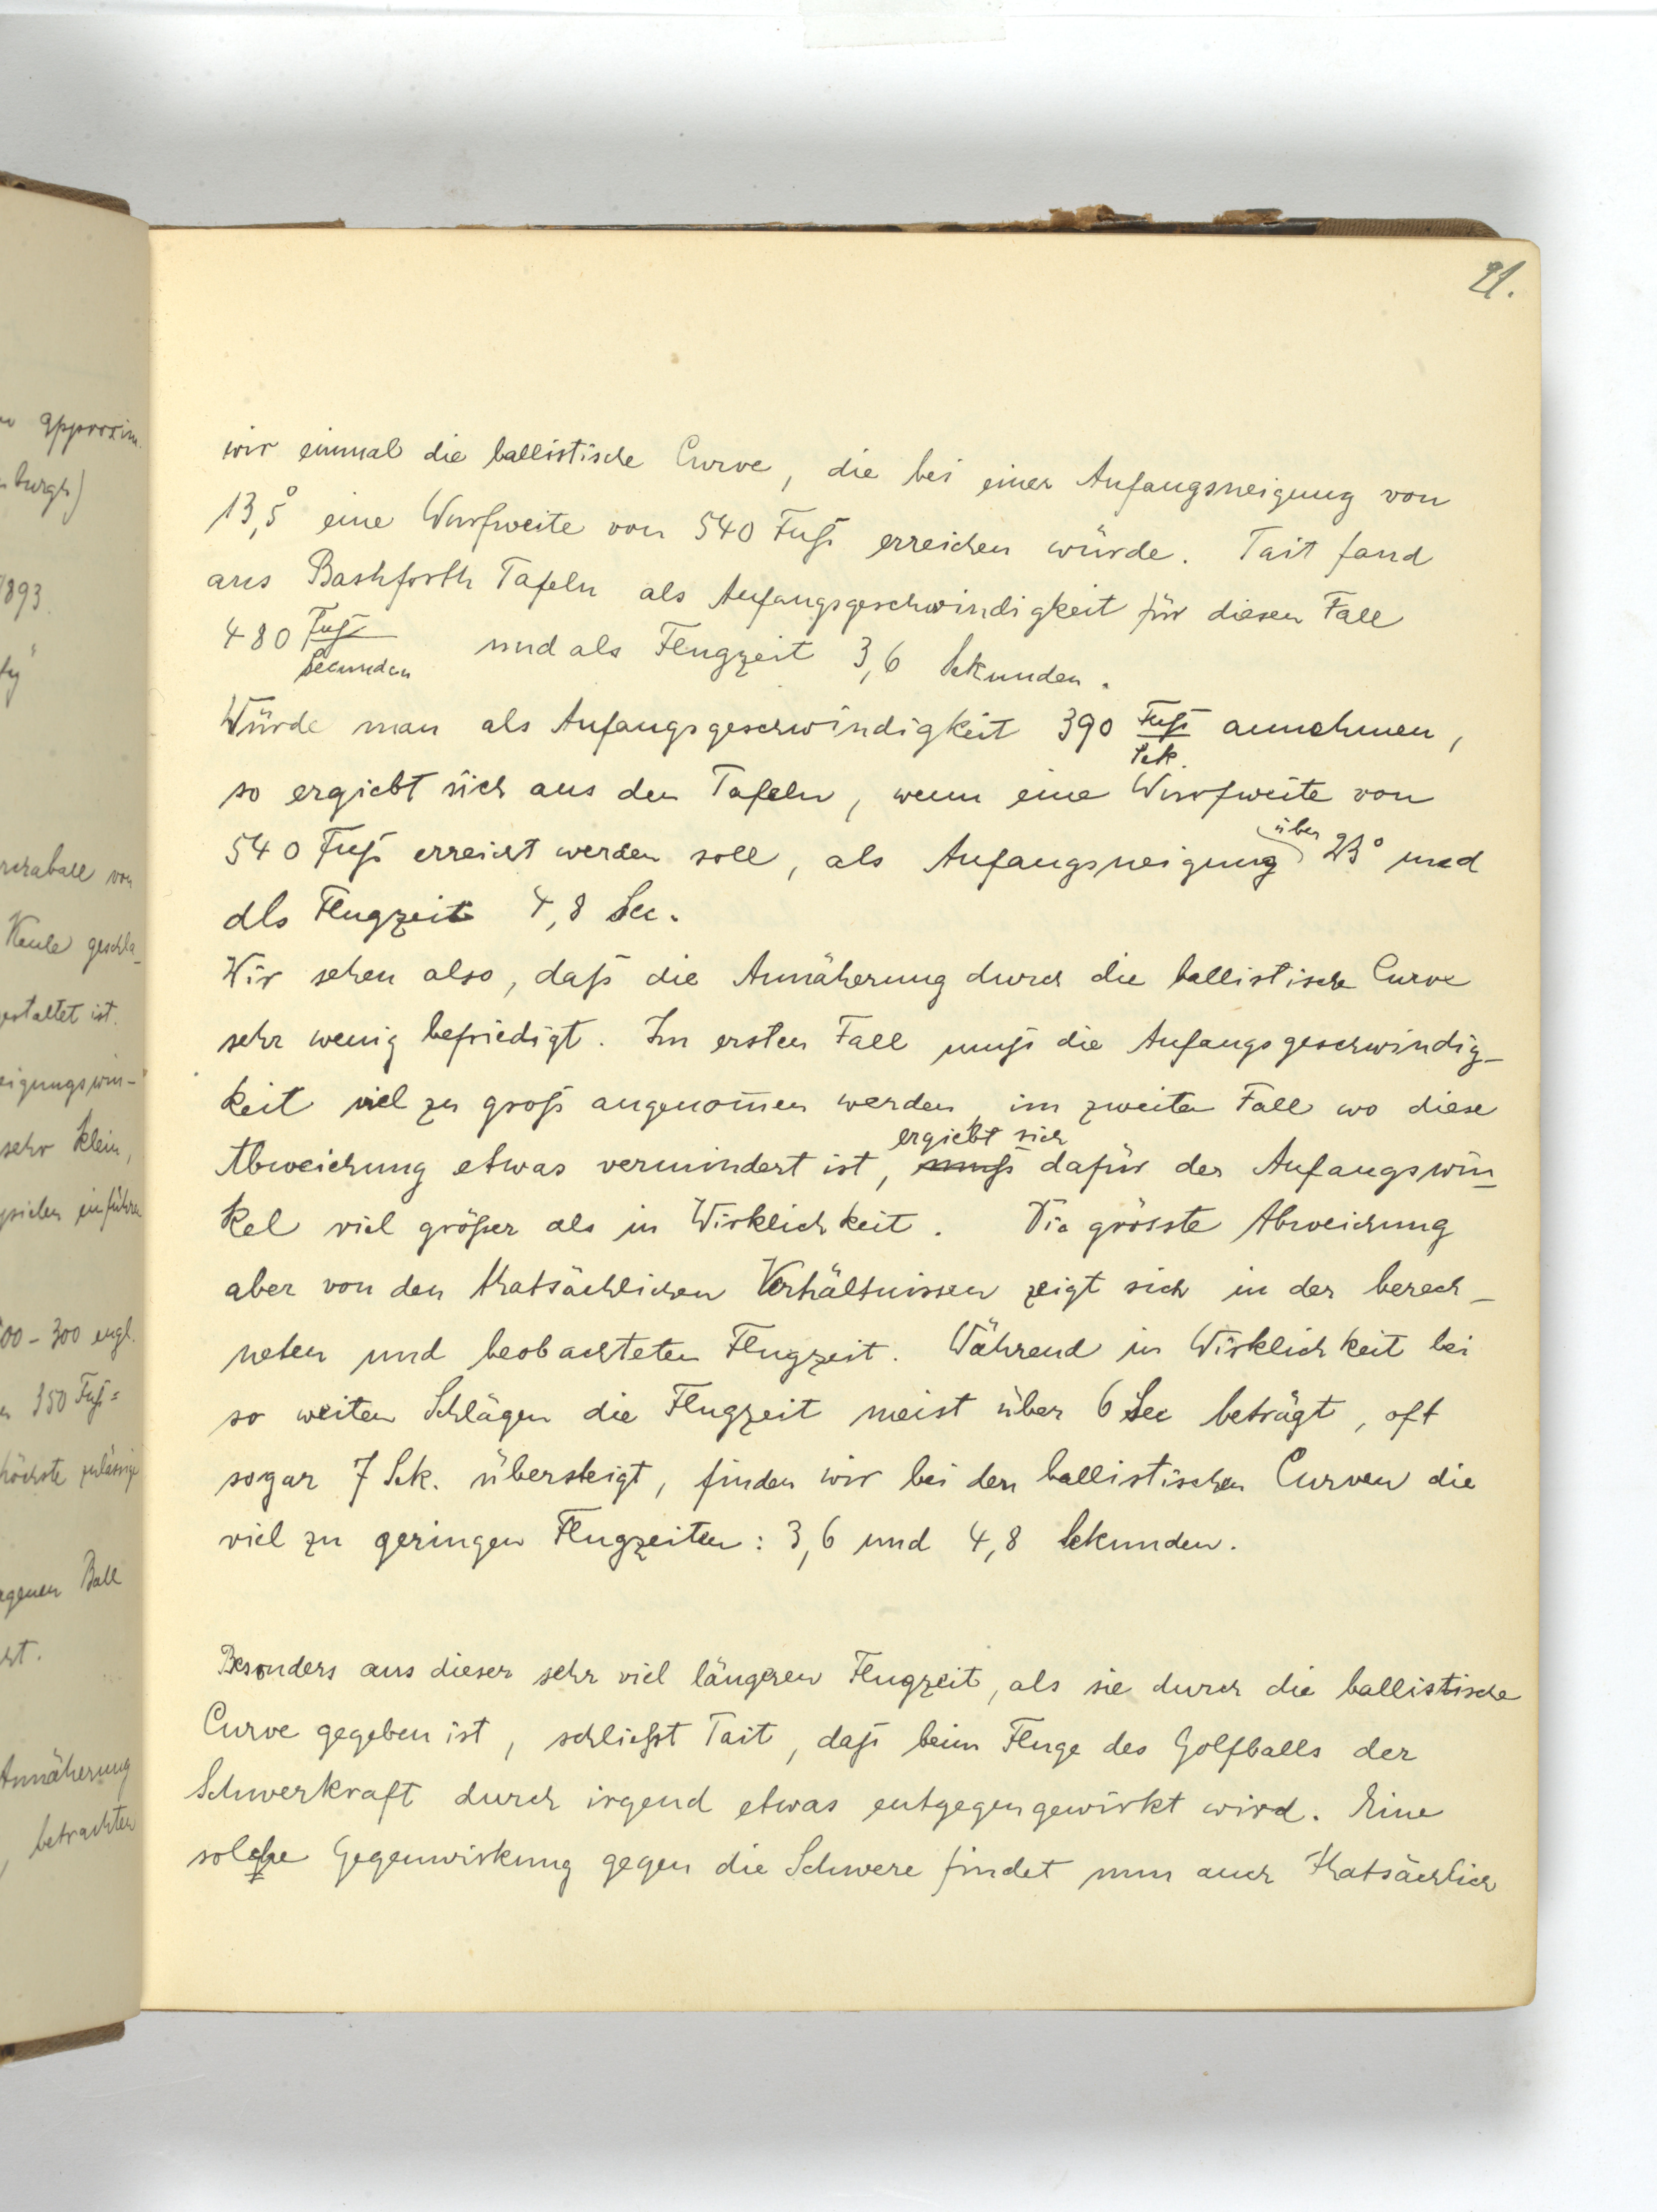 21.
approxim.
burgh)
1893.
wir einmal die ballistische Curve, die bei einer Anfangsneigung von
13,5° eine Wurfweite von 540 Fuß erreichen würde. Tait fand
aus Bashforth Tafeln als Anfangsgeschwindigkeit für diesen Fall
480 Fuß/Secunden und als Flugzeit 3,6 Sekunden.
Würde man als Anfangsgeschwindigkeit 390 Fuß/Sek. annehmen,
so ergiebt sich aus den Tafeln, wenn eine Wurfweite von
540 Fuß erreicht werden soll, als Anfangsneigung über 23° und
als Flugzeit 4,8 Sec.
Wir sehen also, daß die Annäherung durch die ballistische Curve
sehr wenig befriedigt. Im ersten Fall muß die Anfangsgeschwindig-
keit viel zu groß angenom̅en werden, im zweiten Fall wo diese
Abweichung etwas vermindert ist, muß ergiebt sich dafür der Anfangswin-
kel viel größer als in Wirklichkeit. Die grösste Abweichung
aber von den thatsächlichen Verhältnissen zeigt sich in der berech-
neten und beobachteten Flugzeit. Während in Wirklichkeit bei
so weiten Schlägen die Flugzeit meist über 6 Sec beträgt, oft
sogar 7 Sek. übersteigt, finden wir bei den ballistischen Curven die
viel zu geringen Flugzeiten: 3,6 und 4,8 Sekunden.
Besonders aus dieser sehr viel längeren Flugzeit, als sie durch die ballistische
Curve gegeben ist, schließt Tait, daß beim Fluge des Golfballs der
Schwerkraft durch irgend etwas entgegengewirkt wird. Eine
solche Gegenwirkung gegen die Schwere findet nun auch thatsächlich
von
Keule geschla-
gestaltet ist.
eigungswin-
sehr klein,
einführen
00 - 300 engl.
350 Fuß=
höchste zulässige
Ball
Annäherung
, betrachten